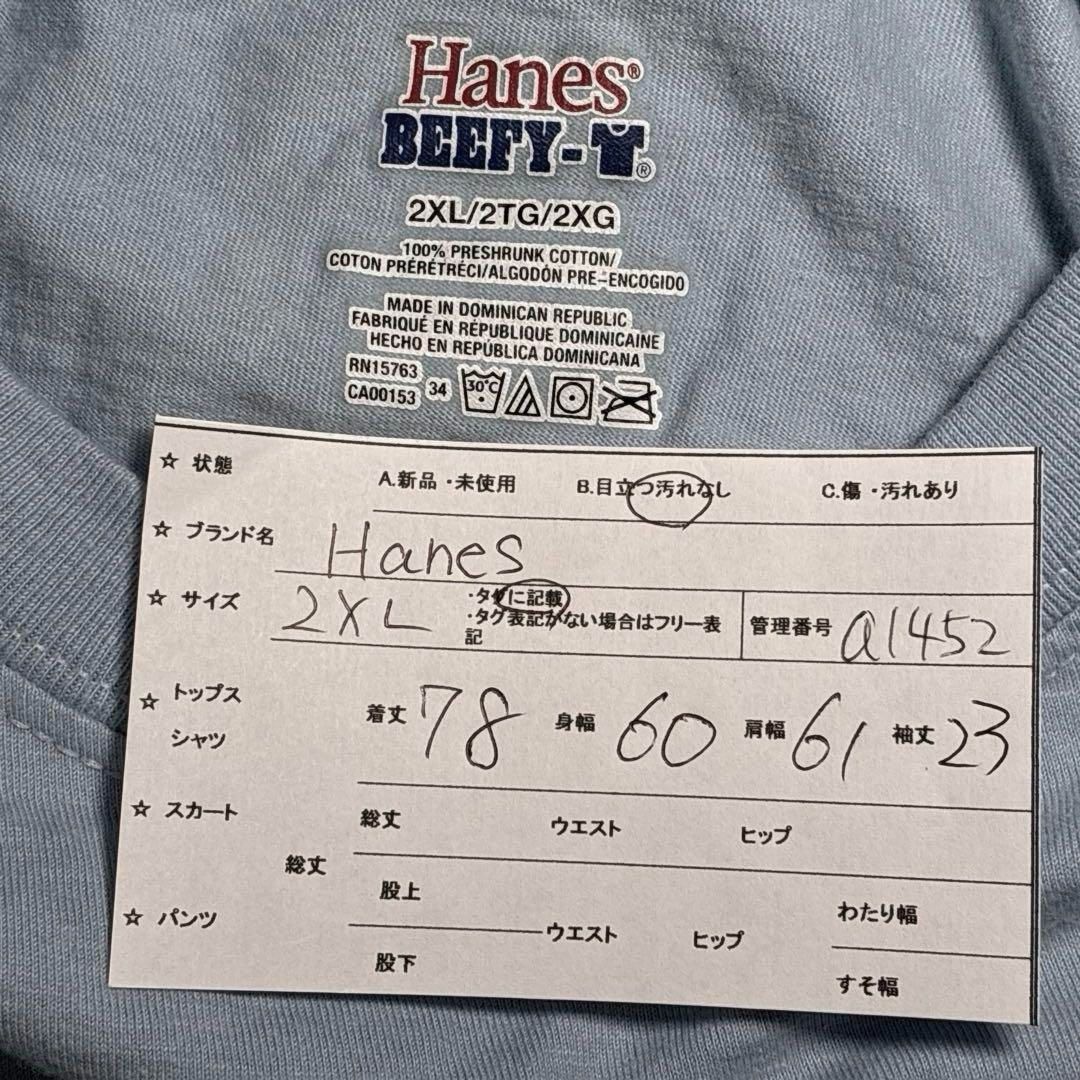 Hanes®
BEEFY-T®
2XL/2TG/2XG
100% PRESHRUNK COTTON/
COTON PRÉRÉTRÉCI/ALGODÓN PRE-ENCOGIDO
MADE IN DOMINICAN REPUBLIC
FABRIQUÉ EN RÉPUBLIQUE DOMINICAINE
HECHO EN REPÚBLICA DOMINICANA
RN15763
CA00153 34 30°C
☆ 状態 A.新品・未使用 B.目立つ汚れなし C.傷・汚れあり
☆ ブランド名 Hanes
☆ サイズ 2XL ・タグに記載
・タグ表記がない場合はフリー表
記
管理番号 a1452
☆ トップス
シャツ
着丈 78 身幅 60 肩幅 61 袖丈 23
☆ スカート 総丈 ウエスト ヒップ
☆ パンツ 総丈 股上 ウエスト ヒップ わたり幅
股下 すそ幅